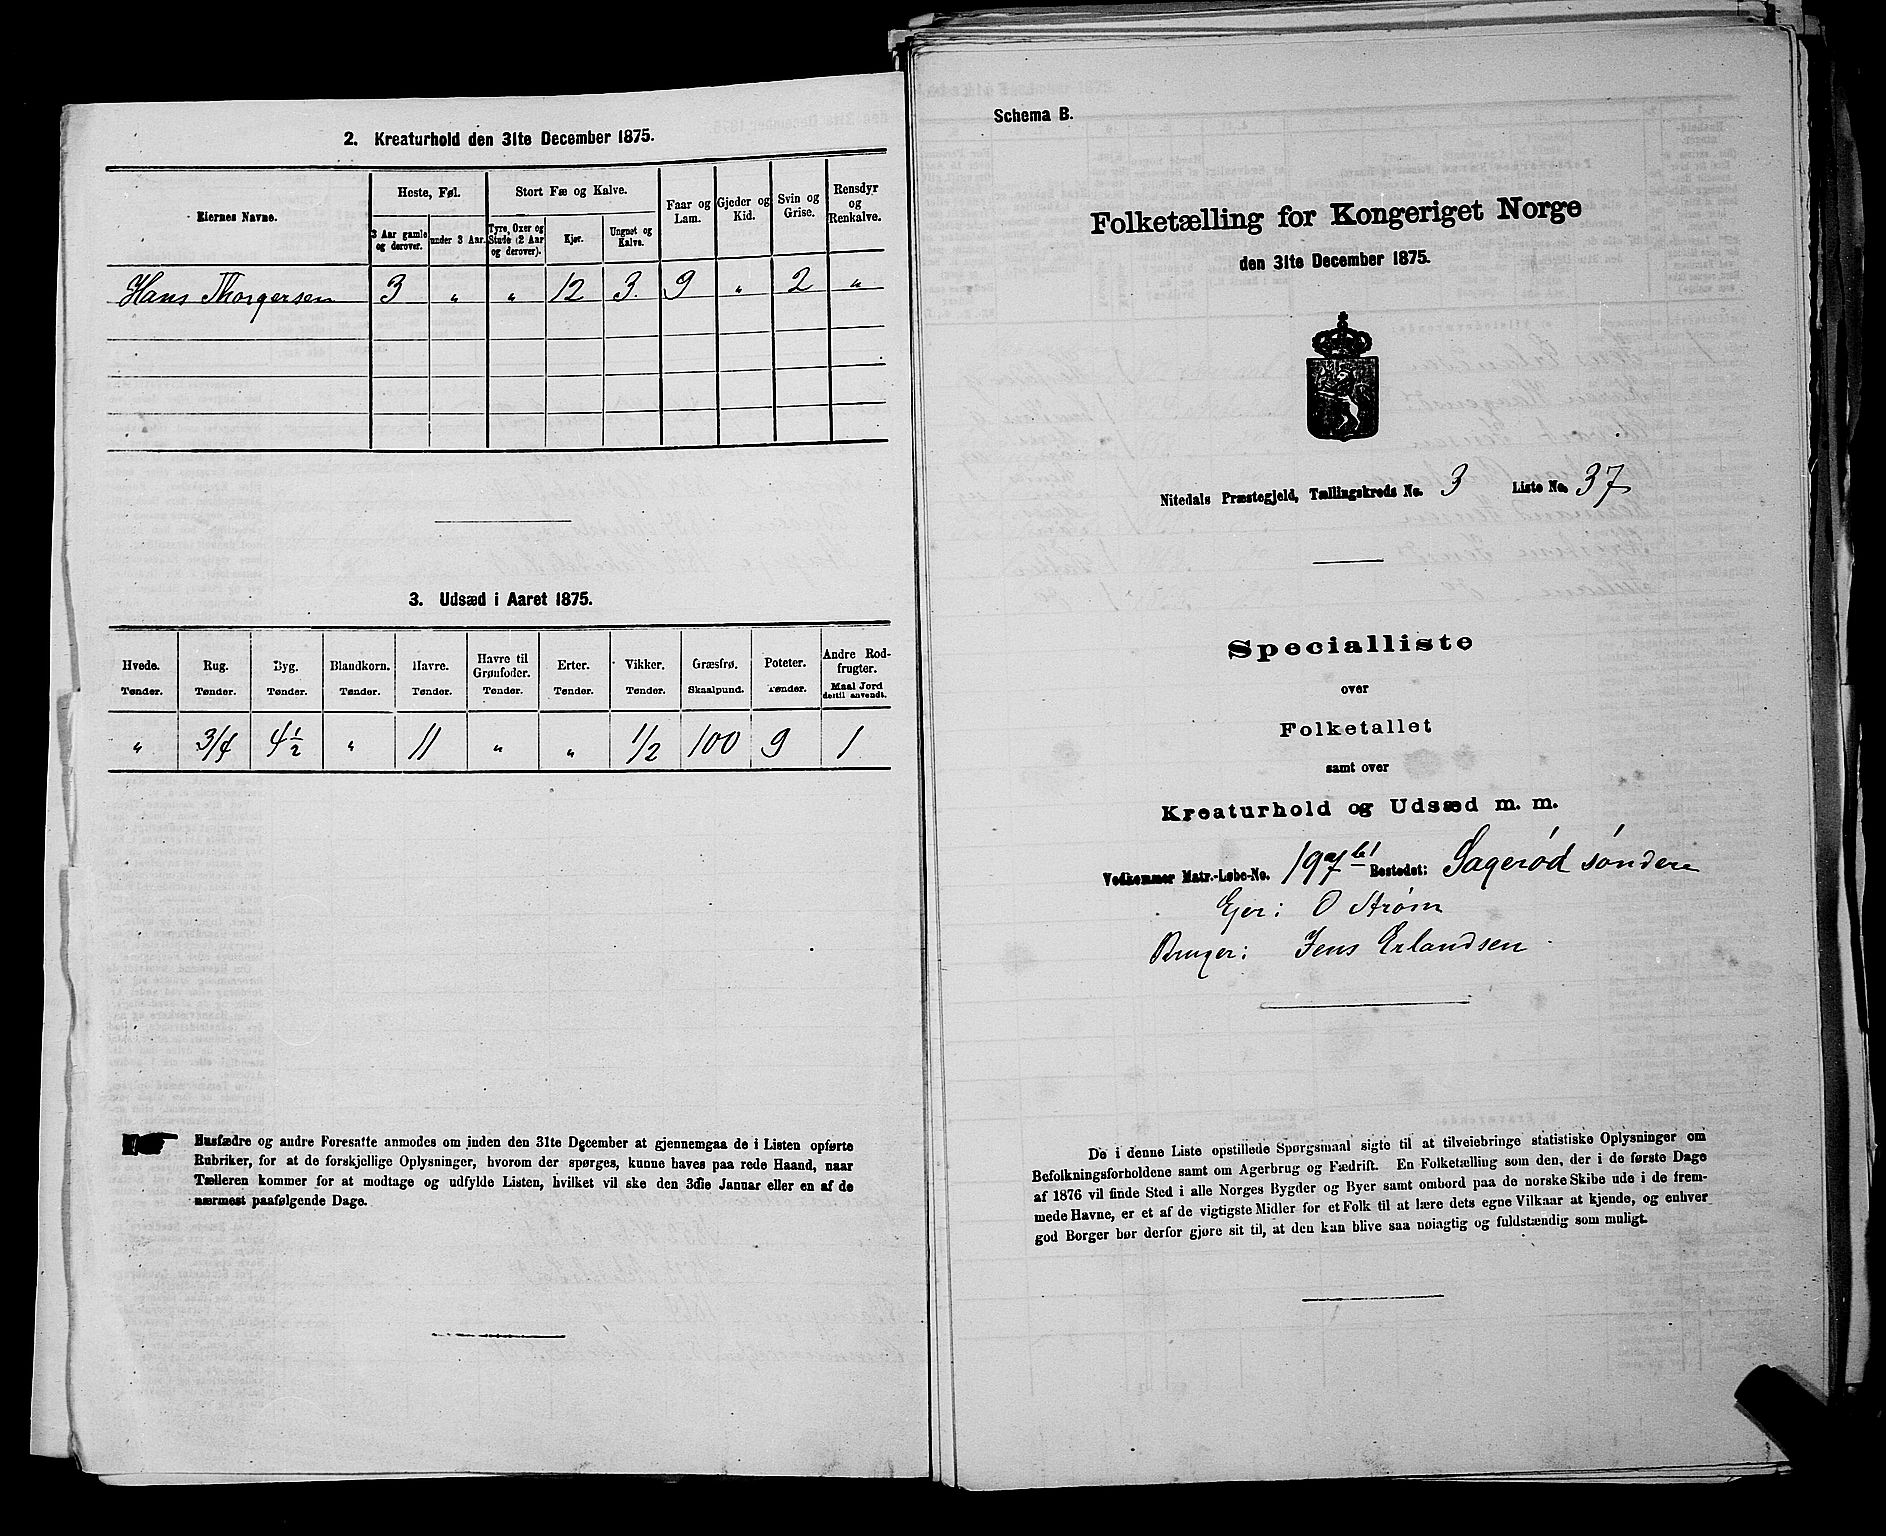 2. Kreaturhold den 31te December 1875.
Eiernes Navne.
Heste, Føl.
3 Aar gamle og derover.
under 3 Aar.
Stort Fæ og Kalve.
Tyre, Oxer og Stude (2 Aar og derover).
Kjør.
Ungnøt og Kalve.
Faar og Lam.
Gjeder og Kid.
Svin og Grise.
Rensdyr og Renkalve.
Hans Thorgersen 3 " " 12 3. 9 " 2 "
3. Udsæd i Aaret 1875.
Hvede. Rug. Byg. Blandkorn. Havre. Havre til Grønfoder. Erter. Vikker. Græsfrø. Poteter. Andre Rodfrugter.
Tønder. Tønder. Tønder. Tønder. Tønder. Tønder. Tønder. Tønder. Skaalpund. Tønder. Maal Jord dertil anvendt.
" 3/4 4 1/2 " 11 " " 1/2 100 9 1
Husfædre og andre Foresatte anmodes om inden den 31te December at gjennemgaa de i Listen opførte
Rubriker, for at de forskjellige Oplysninger, hvorom der spørges, kunne haves paa rede Haand, naar
Tælleren kommer for at modtage og udfylde Listen, hvilket vil ske den 3die Januar eller en af de
nærmest paafølgende Dage.
Schema B.
Folketælling for Kongeriget Norge
den 31te December 1875.
Nitedals Præstegjeld, Tællingskreds No. 3 Liste No. 37
Specialliste
over
Folketallet
samt over
Kreaturhold og Udsæd m. m.
Vedkommer Matr.-Løbe-No. 197 b1 Bostedet: Sagerød søndere
Ejer: O Strøm
Bruger: Jens Erlandsen
De i denne Liste opstillede Spørgsmaal sigte til at tilveiebringe statistiske Oplysninger om
Befolkningsforholdene samt om Agerbrug og Fædrift. En Folketælling som den, der i de første Dage
af 1876 vil finde Sted i alle Norges Bygder og Byer samt ombord paa de norske Skibe ude i de frem-
mede Havne, er et af de vigtigste Midler for et Folk til at lære dets egne Vilkaar at kjende, og enhver
god Borger bør derfor gjøre sit til, at den kan blive saa nøiagtig og fuldstændig som muligt.